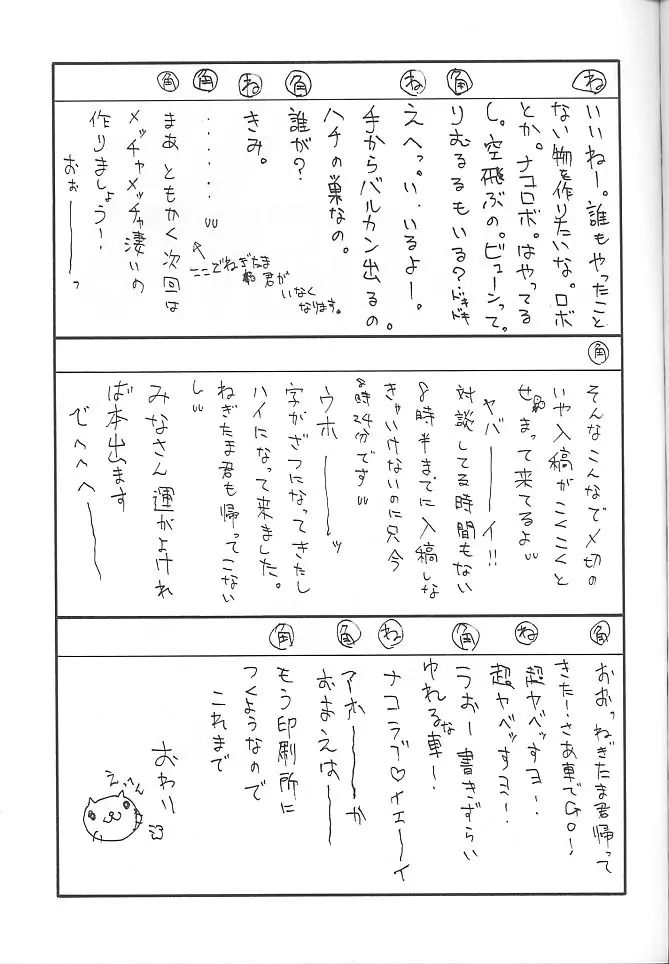 ね
いいねー。誰もやったこと
ない物を作りたいな。ロボ
とか。ナコロボ。はやってる
し。空飛ぶの。ビューンって。
角
りむるるもいる?ドキドキ
ね
えへっ。い、いるよー。
手からバルカン出るの。
ハチの巣なの。
角
誰が?
ね
きみ。
角
・・・・・・
ここでねぎたま
君が
いなく
なります。
角
まあ ともかく次回は
メッチャメッチャ凄いの
作りましょう!
おぉーーっ
角
そんなこんなで〆切の
いや入稿がこくこくと
せまって来てるよ
ヤバーーイ!!
対談してる時間もない
8時半までに入稿しな
きゃいけないのに只今
8時24分です
ウホーーッ
字がざつになってきたし
ハイになって来ました。
ねぎたま君も帰ってこない
し
みなさん運がよけれ
ば本出ます
でへへへーー
角
おおっねぎたま君帰って
きた!さあ車でGO!
ね
超ヤベッすヨ!
超ヤベッすヨ!
角
うおー書きずらい
ゆれるな車!
ね
ナコラブ♡イエーイ
角
アホーーか
おまえはーー
角
もう印刷所に
つくようなので
これまで
おわり
えってん